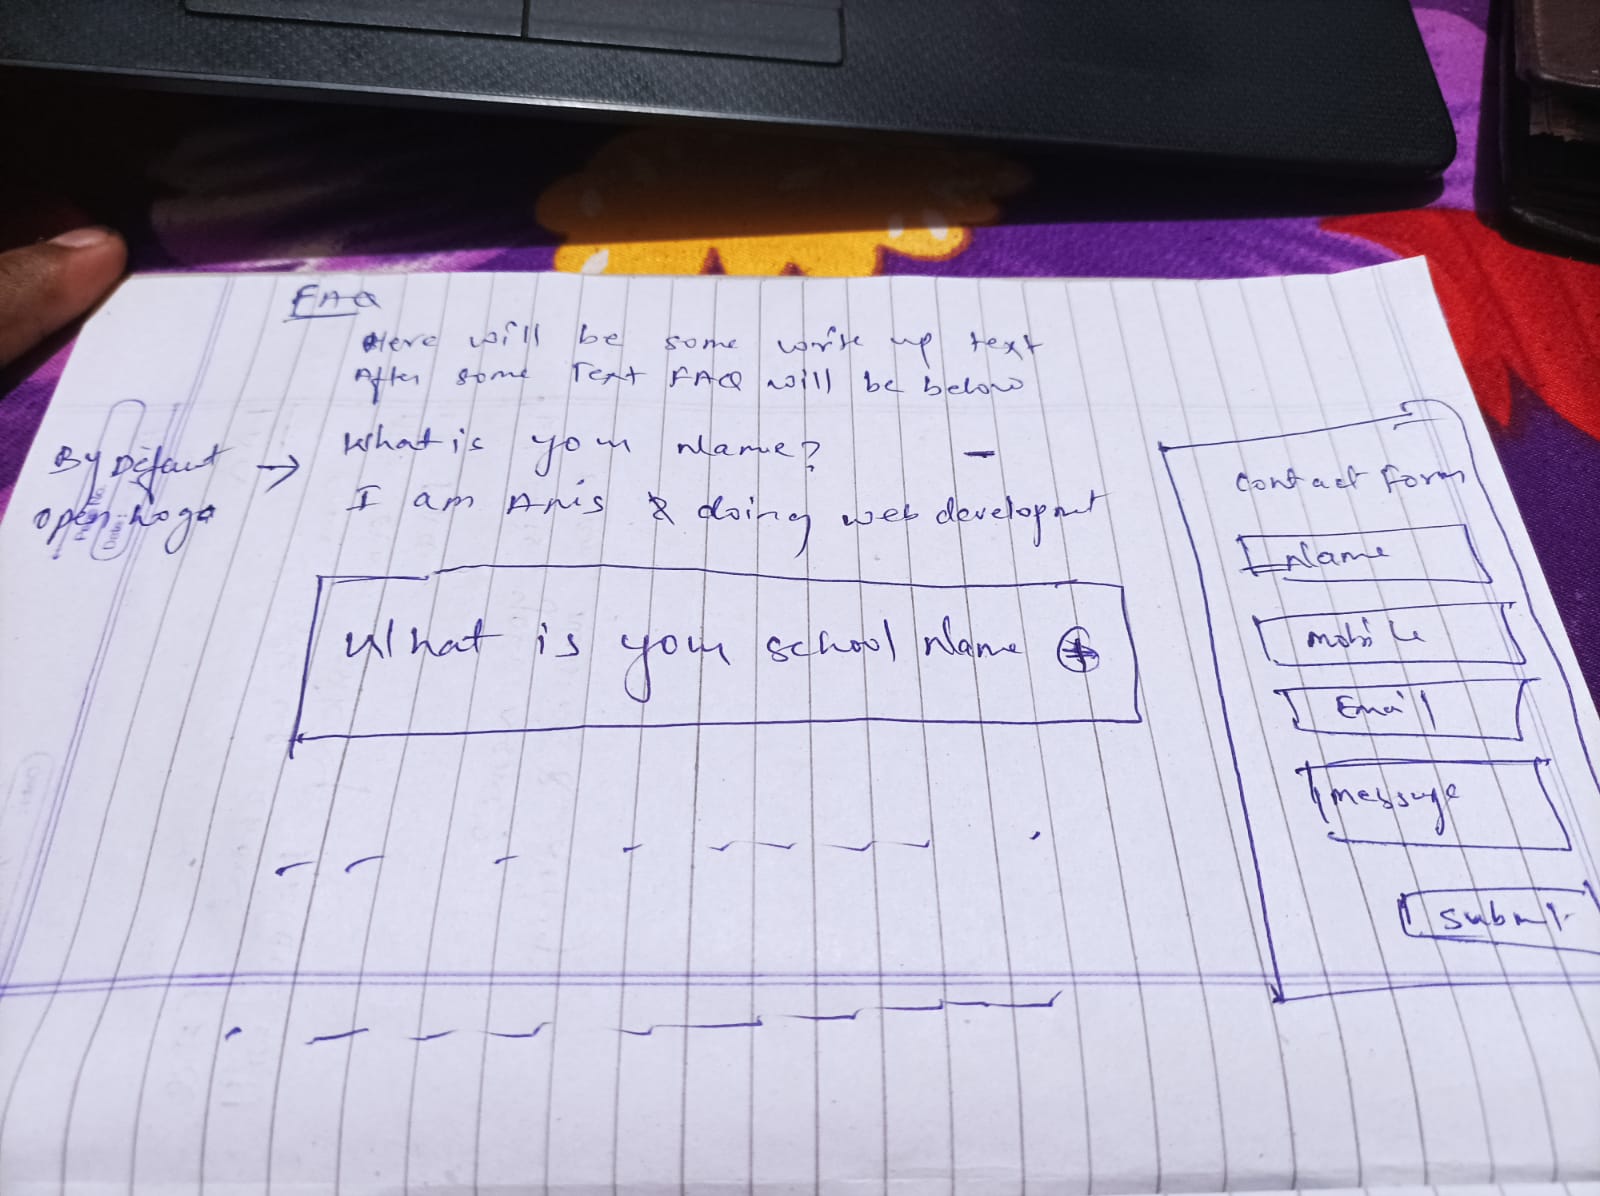 FAQ
Here will be some write up text
After some Text FAQ will be below
By Default
open hoga
→
What is your Name? -
I am Anis & doing web developmt
What is your school Name +
contact form
Name
mobile
Email
message
submit